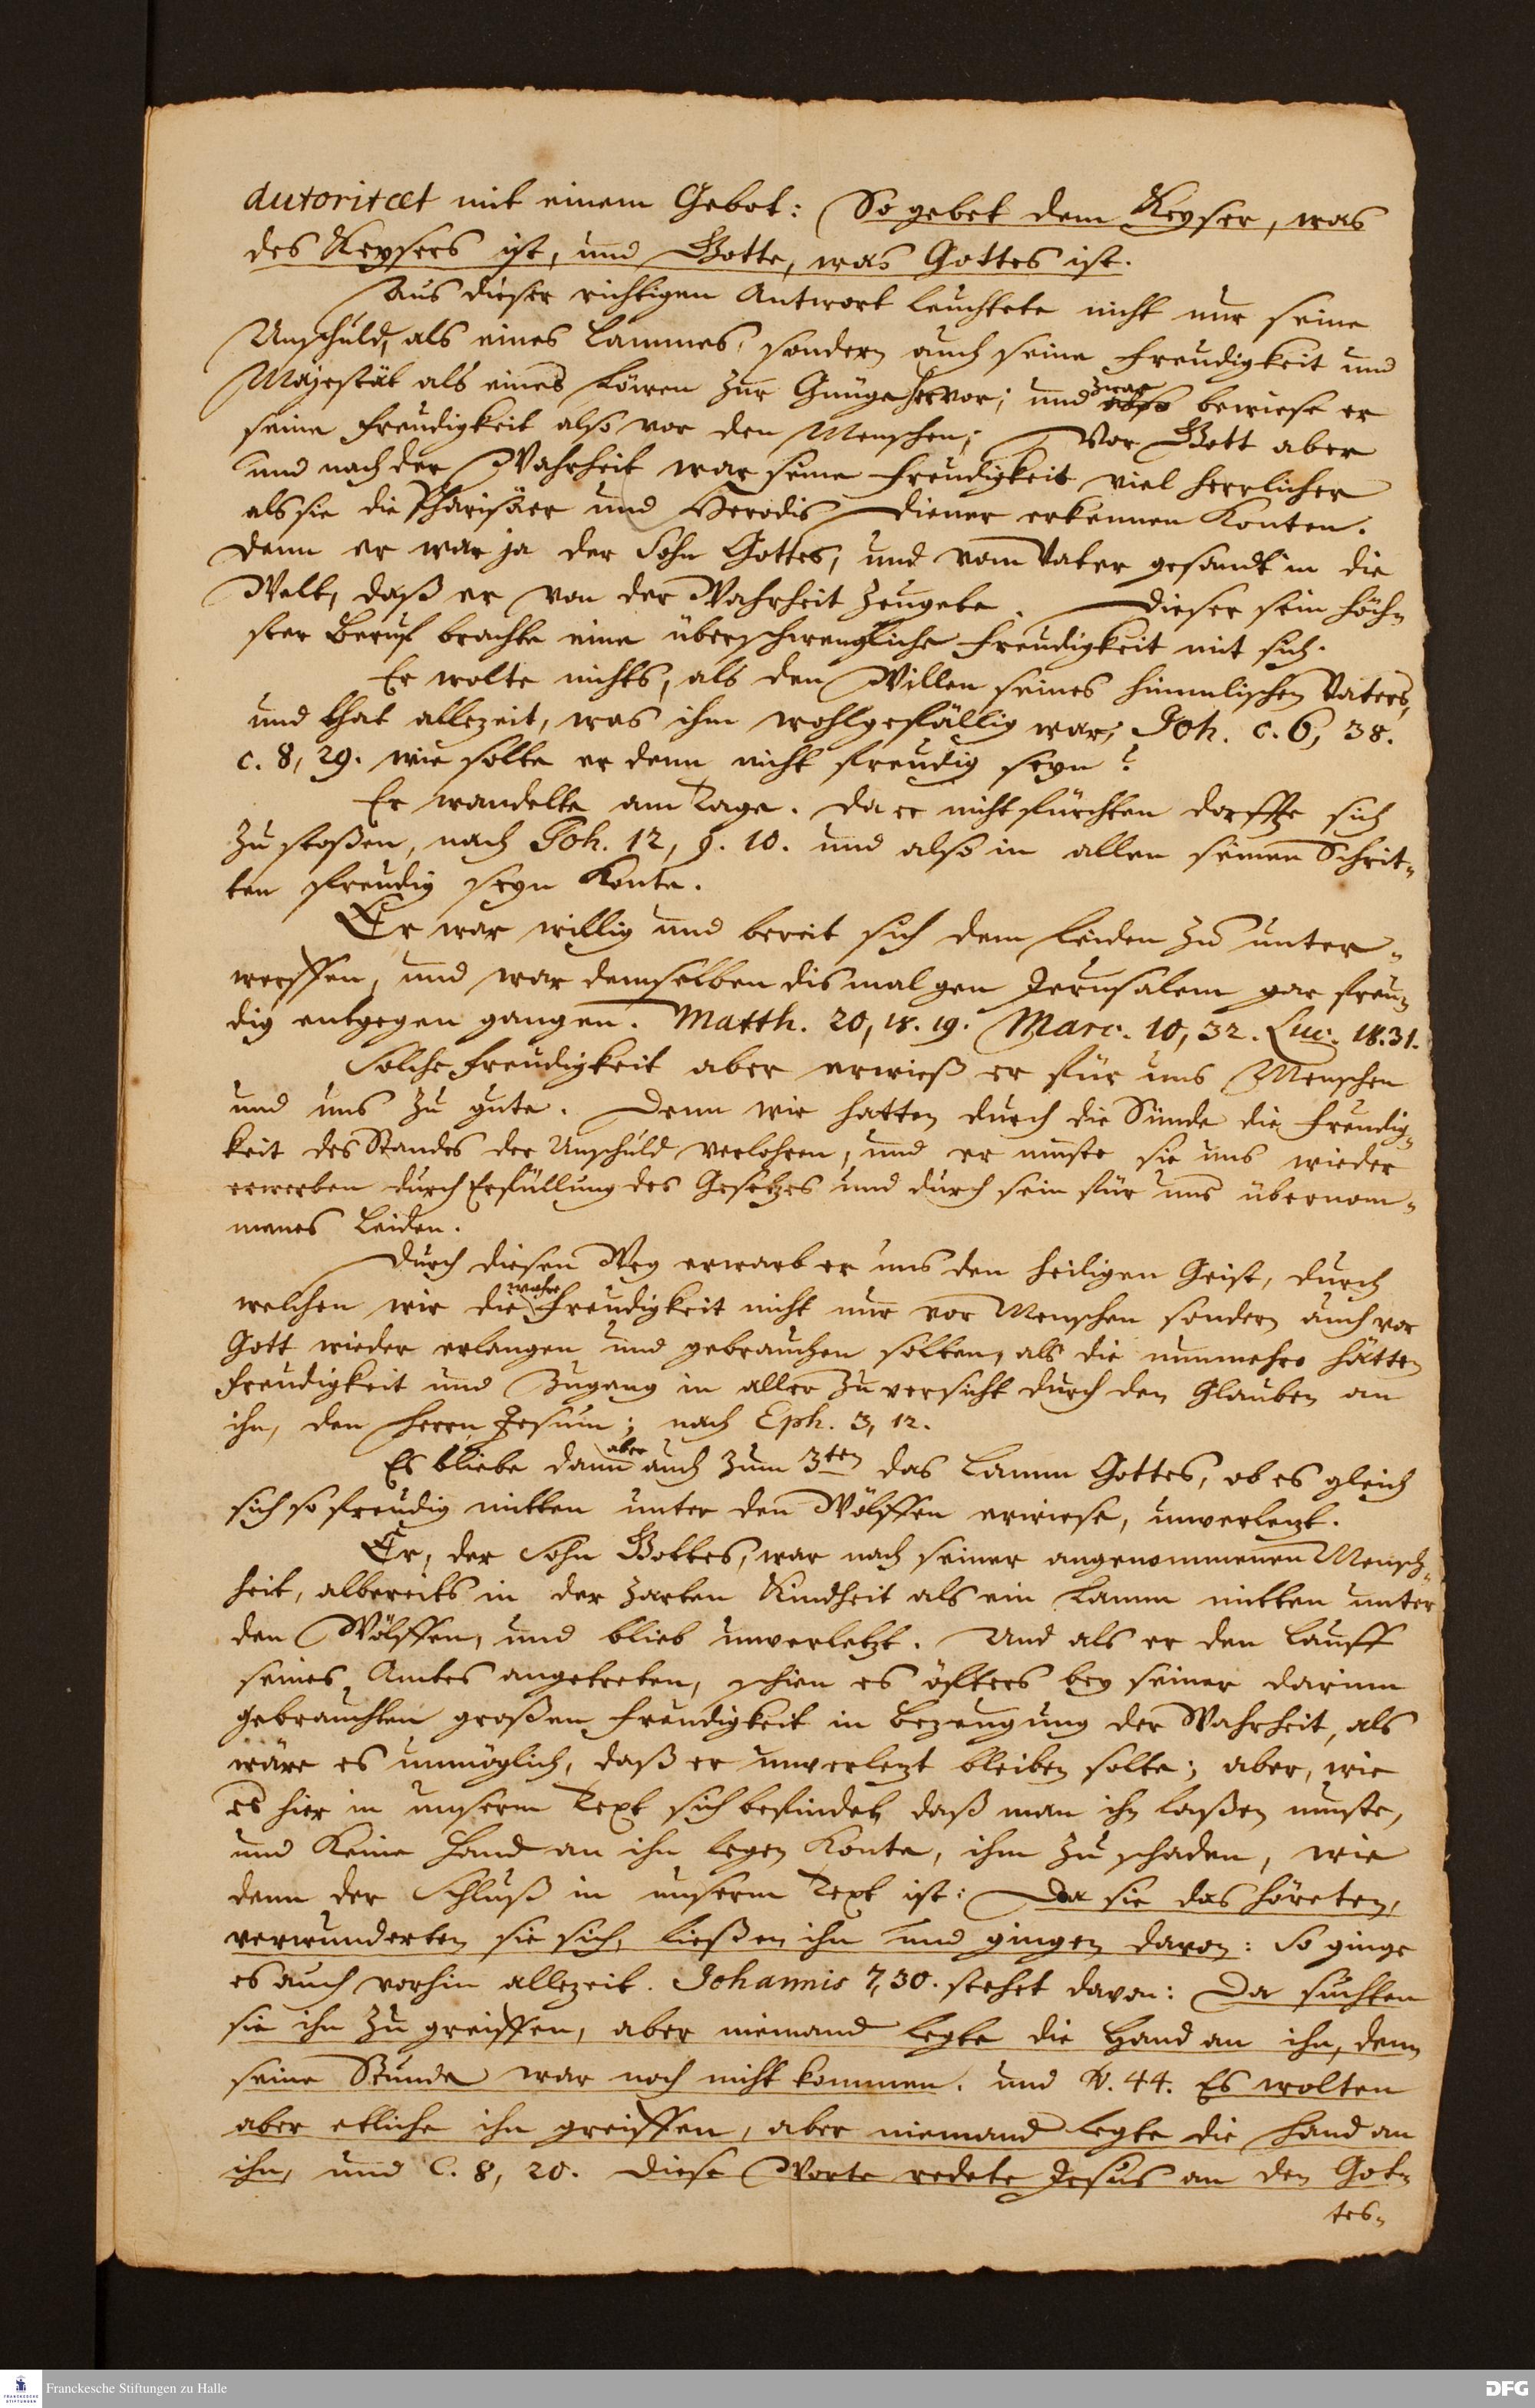 autoritæt mit einem Gebot: So gebet dem Keyser, was
des Keysers ist, und Gotte, was Gottes ist.
Aus dieser richtigen Antwort leuchtete nicht nur seine
Unschuld, als eines Lammes, sondern auch seine Freudigkeit und
Majestät als eines Löwen zur Gnüge hervor; und zwar bewiese er
seine Freudigkeit also vor den Menschen; Vor Gott aber
und nach der Wahrheit war seine Freudigkeit viel herrlicher
als sie die Pharisäer und Herodis Diener erkennen konten.
Denn er war ja der Sohn Gottes, und vom Vater gesandt in die
Welt, daß er von der Wahrheit zeugete. Dieser sein höch-
ster Beruf brachte eine überschwengliche Freudigkeit mit sich.
Er wolte nichts, als den Willen seines himmlischen Vaters,
und that allezeit, was ihm wohlgefällig war; Joh. c. 6, 38.
c. 8, 29. wie solte er denn nicht freudig seyn?
Er wandelte am Tage. da er nicht fürchten dorffte sich
zu stoßen, nach Joh. 12, 9. 10. und also in allen seinen Schrit-
ten freudig seyn konte.
Er war willig und bereit sich dem Leiden zu unter-
werffen, und war demselben dismal gen Jerusalem gar freu-
dig entgegen gangen. Matth. 20, 18. 19. Marc. 10, 32. Luc. 18. 31.
Solche Freudigkeit aber erwieß er für uns Menschen
und uns zu gute. Denn wir hatten durch die Sünde die Freudig-
keit des Standes der Unschuld verlohren, und er muste sie uns wieder
erwerben durch Erfüllung des Gesetzes und durch sein für uns übernom-
menes Leiden.
Durch diesen Weg erwarb er uns den heiligen Geist, durch
welchen wir die wahre Freudigkeit nicht nur vor Menschen sondern auch vor
Gott wieder erlangen und gebrauchen solten, als die nunmehro hätten
Freudigkeit und Zugang in aller Zuversicht durch den Glauben an
ihn, den Herrn Jesum; nach Eph. 3, 12.
Es bliebe dann aber auch zum 3ten das Lamm Gottes, ob es gleich
sich so freudig mitten unter den Wölffen erwiese, unverlezt.
Er, der Sohn Gottes, war nach seiner angenommenen Mensch-
heit, albereits in der zarten Kindheit als ein Lamm mitten unter
den Wölffen, und blieb unverletzt. Und als er den Lauff
seines Amtes angetreten, schien es öfters bey seiner darinn
gebrauchten großen Freudigkeit in Bezeugung der Wahrheit, als
wäre es unmöglich, daß er unverlezt bleiben solte; aber, wie
es hier in unserm Text sich befindet, daß man ihn laßen muste,
und keine Hand an ihn legen konte, ihm zu schaden, wie
denn der Schluß in unserm Text ist: Da sie das höreten,
verwunderten sie sich, ließen ihn und gingen davon: So ginge
es auch vorhin allezeit. Johannis 7, 30. stehet davon: Da suchten
sie ihn zu greiffen, aber niemand legte die Hand an ihn, denn
seine Stunde war noch nicht kommen. und V. 44. Es wolten
aber etliche ihn greiffen, aber niemand legte die Hand an
ihn, und C. 8, 20. Diese Worte redete Jesus an den Got-
tes-
Franckesche Stiftungen zu Halle
DFG